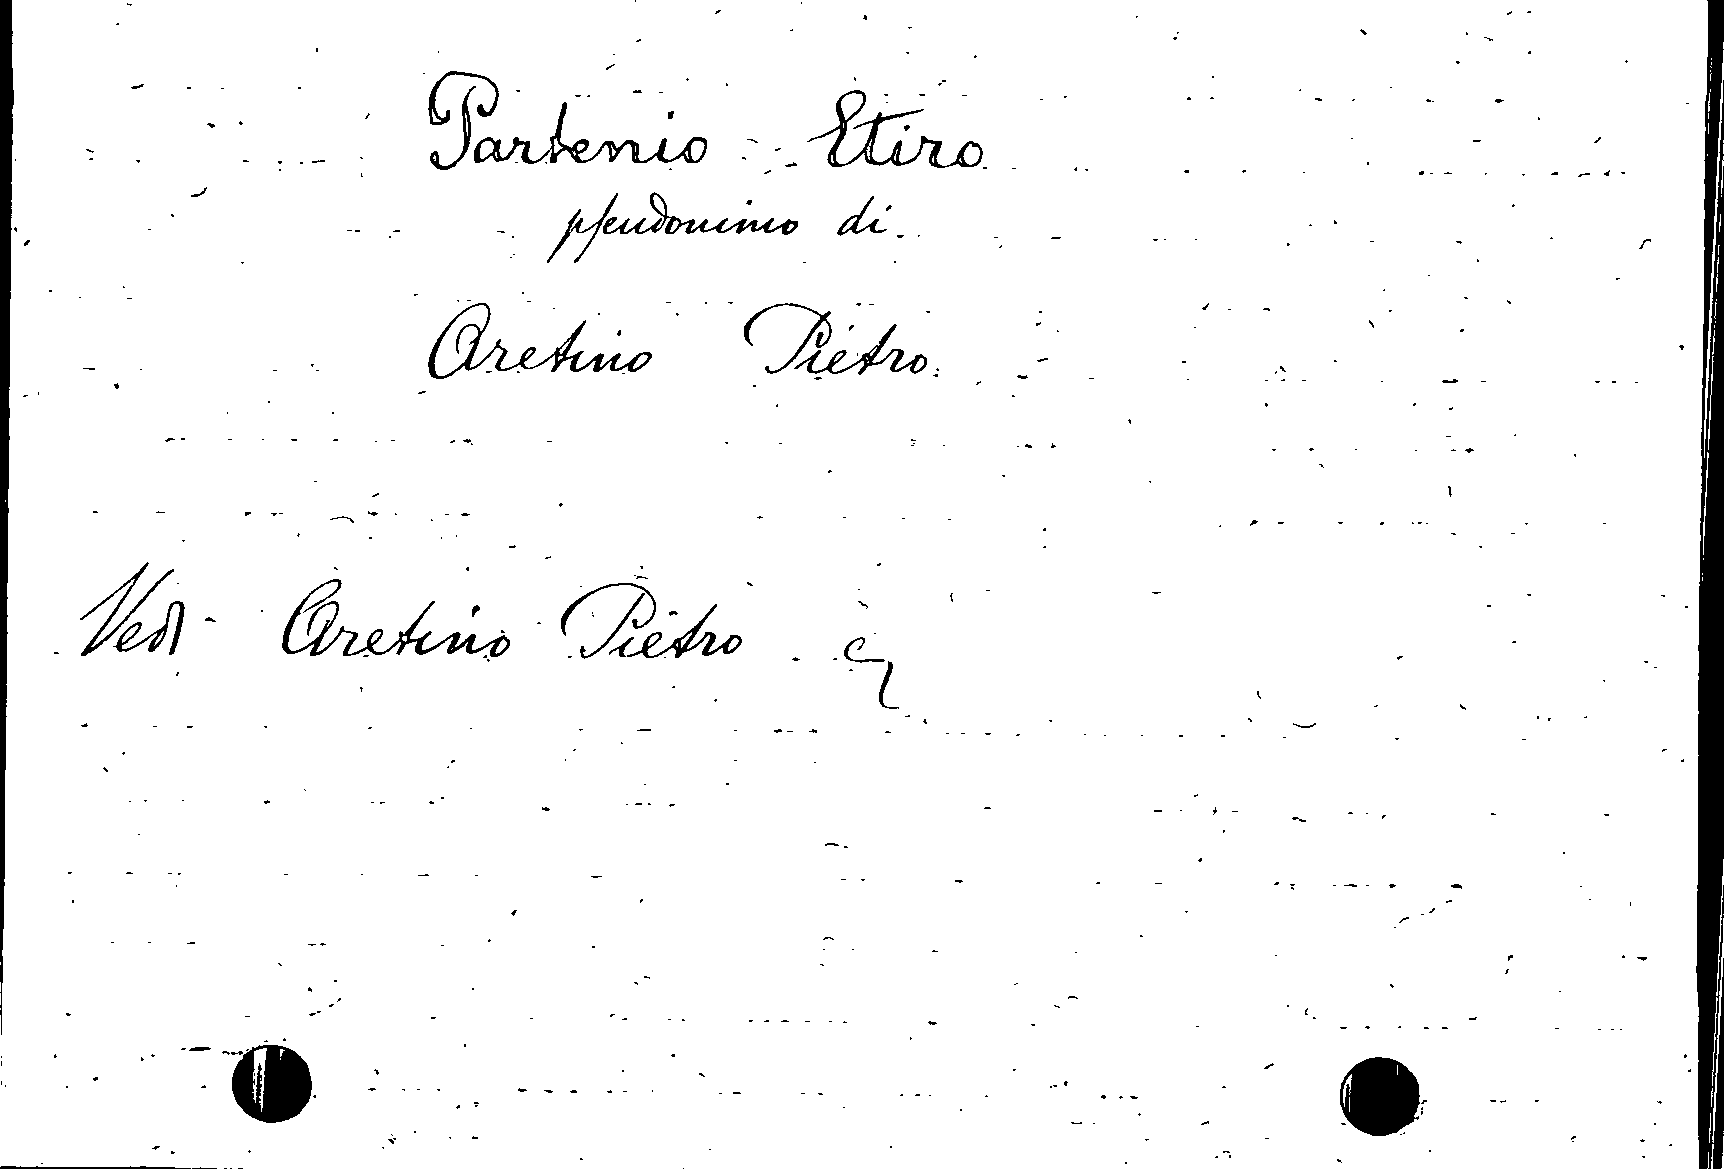 Partenio Etiro
pseudonimo di
Aretino Pietro
Vedi Aretino Pietro